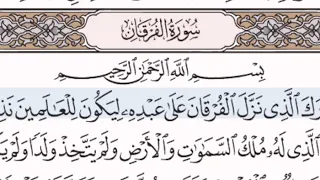 سُورَةُ الْفُرْقَانِ
بِسْمِ اللَّهِ الرَّحْمَٰنِ الرَّحِيمِ
رَكَ الَّذِي نَزَّلَ الْفُرْقَانَ عَلَىٰ عَبْدِهِ لِيَكُونَ لِلْعَالَمِينَ نَذِ
الَّذِي لَهُ مُلْكُ السَّمَاوَاتِ وَالْأَرْضِ وَلَمْ يَتَّخِذْ وَلَدًا وَلَمْ يَ